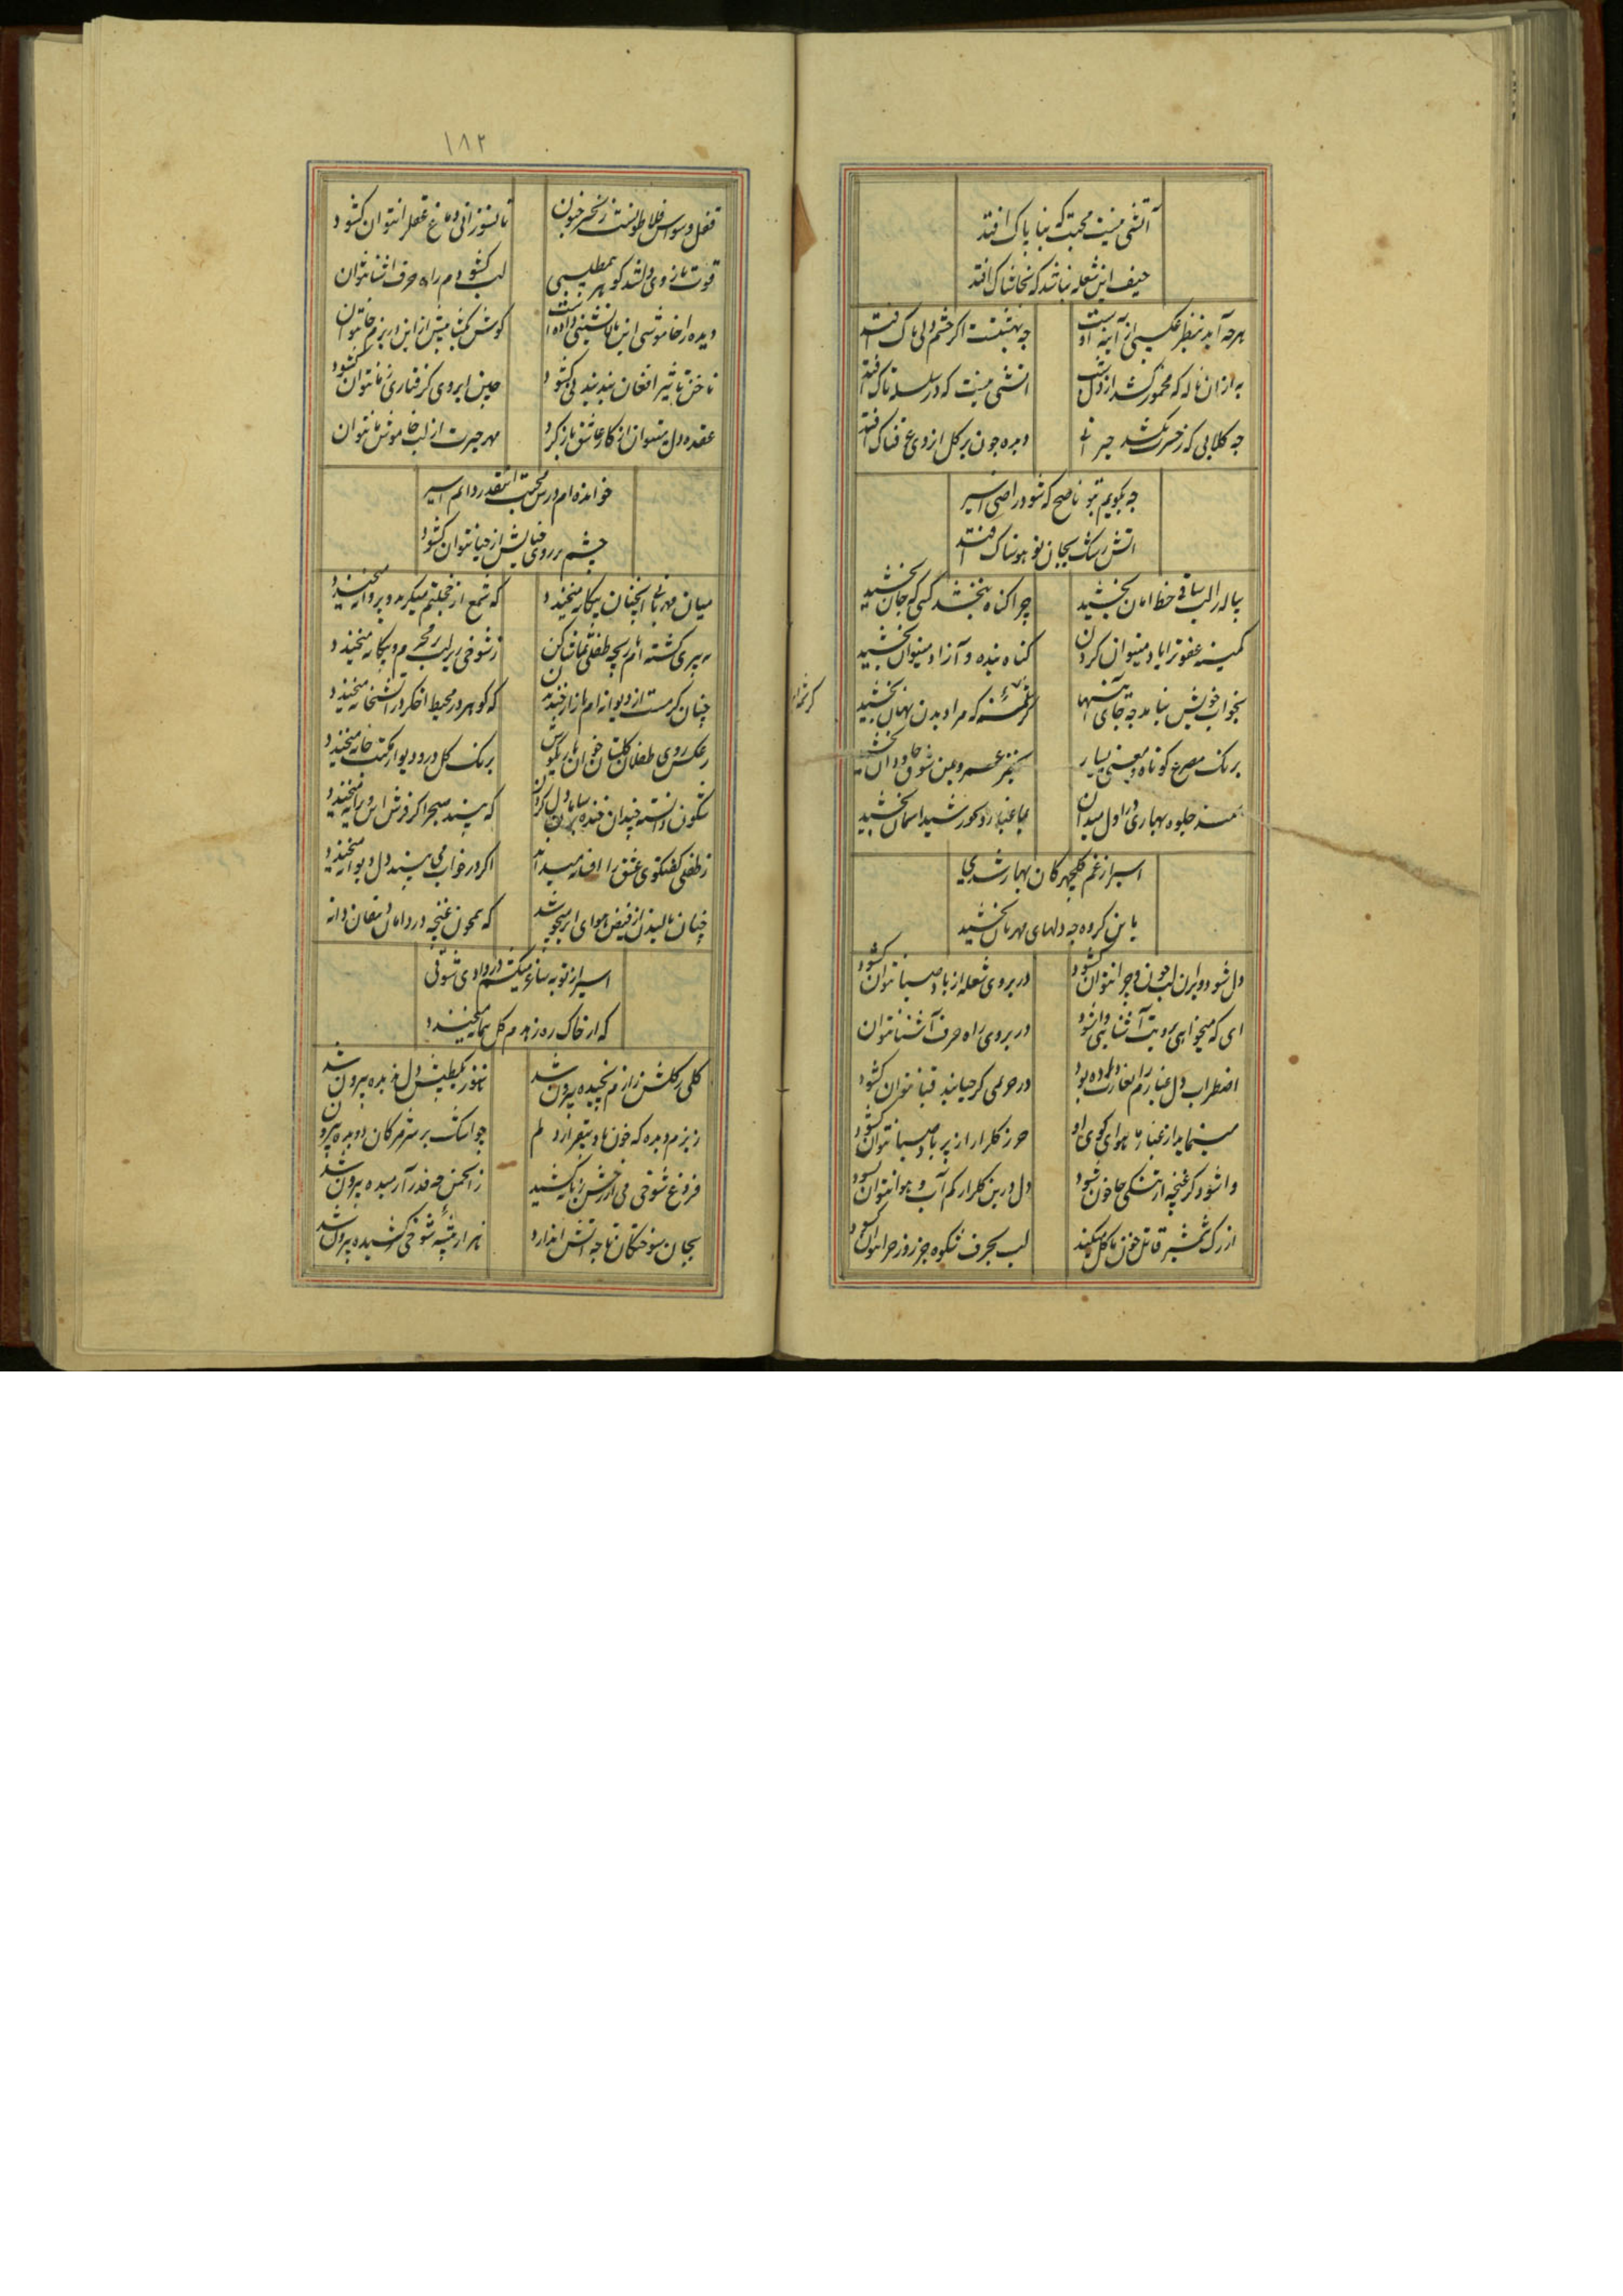 آتشی نیست محبت که بناپاک افتد
حیف این شعله نباشد که بخاشاک افتد
هرچه آید بنظر عکسی از آینه اوست
چه بهشتست اگر چشم دلی پاک افتد
به از آن ناله که مخمور کشد از دل
آتشی نیست که در سلسله تاک افتد
چه گلابی که ز خسرت نکشد حیرانی
دیده چون بر گل از روی عرقناک افتد
چه بگویم بتو ناصح که شود راضی اسیر
آتش رشک بجان تو هوسناک افتد
پیاله را لب ساقی خط امان بخشید
چرا گناه نبخشد کسی که جان بخشید
کمینه عفو ترا یاد میتوان کردن
گناه بنده و آزاد میتوان بخشید
بخواب خویش نیامد چه جای
که مرا دیدن نهان بخشید
برنگ مصرع کوتاه و معنی بسیار
شوق جاودان بخشید
جلوه بهاری در اول میدان
بما غبار و بخورشید آسمان بخشید
اسیر از غم گلچهرگان بهار شدی
باین گروه چه دلهای مهربان بخشید
دل شود ویران لب چون و چرا نتوان گشود
در بروی شعله از باد صبا نتوان گشود
ای که میخواهی برویت آشنایی وا شود
در بروی راه حرف آشنا نتوان
اضطراب دل غبارم را بغارت داده بود
در حریمی کز حیا بند قبا نتوان گشود
مینماید از غبار ما هوای کوی او
جز گلزار از پر باد صبا نتوان گشود
وا شود گر غنچه از تنگی جا خون شود
دل درین گلزار کم آب و هوا نتوان گشود
از رگ شمشیر قاتل خون ما گل میکند
لب بحرف شکوه جز روز جزا نتوان گشود
۱۸۲
قفل وسواس فلاطونست زنجیر جنون
تا نسوزانی دماغ عقل را نتوان گشود
قوت بازوی دل شد گوهر بمطلبی
لب گشودم راه حرف آشنا نتوان
دیده را خاموشی این بالانشینی داده است
گوش کمتر بیش ازین در بزم ما نتوان
ناخن تاثیر افغان بند بند نی گشود
چین ابروی گرفتاری ز ما نتوان گشود
عقده دل میتوان از کار عاشق باز کرد
مهر حیرت از لب خاموش ما نتوان
خوانده ام درس محبت اینقدر دانم اسیر
چشم بر روی فنایش از حیا نتوان گشود
میان مهربانی آنچنان بیگانه میخندد
که شمع از خجلتم میگرید و پروانه میخندد
به پیری گشته ام بازیچه طفلی تماشا کن
ز شوخی زیر لب محرم و بیگانه میخندد
چنان گرمست از دیوانه ام بازار خندیدن
که گوهر در محیط اخگر در آتشخانه میخندد
ز عکس روی طفلان گلستان خوان
برنگ گل در و دیوار مکتب خانه میخندد
شگون دانسته چندان خنده بر سامان دل کردن
که بیند صبح را گر فرش این ویرانه میخندد
ز طفلی گفتگوی عشق را افسانه میداند
اگر در خواب می بیند دل دیوانه میخندد
چنان بالیدن از فیض هوای ابر میجوشد
که همچون غنچه در دامان دهقان دانه
اسیر از توبه ساغر میکشم در وادی شوقی
که از خاک ره زهدم گل پیمانه میخندد
گلی ز گلشن رازم نچیده بیرون شد
هنوز یکطپش دل ندیده بیرون شد
ز بزم دیده که خون باد بیقرار دلم
چو اشک بر سر مژگان دویده بیرون
فروغ شوخی می از رخش زبانه کشید
ز انجمن چه قدر آرمیده بیرون شد
بجان سوختگان تا چه آتش اندازد
هزار شوخی کشیده بیرون شد